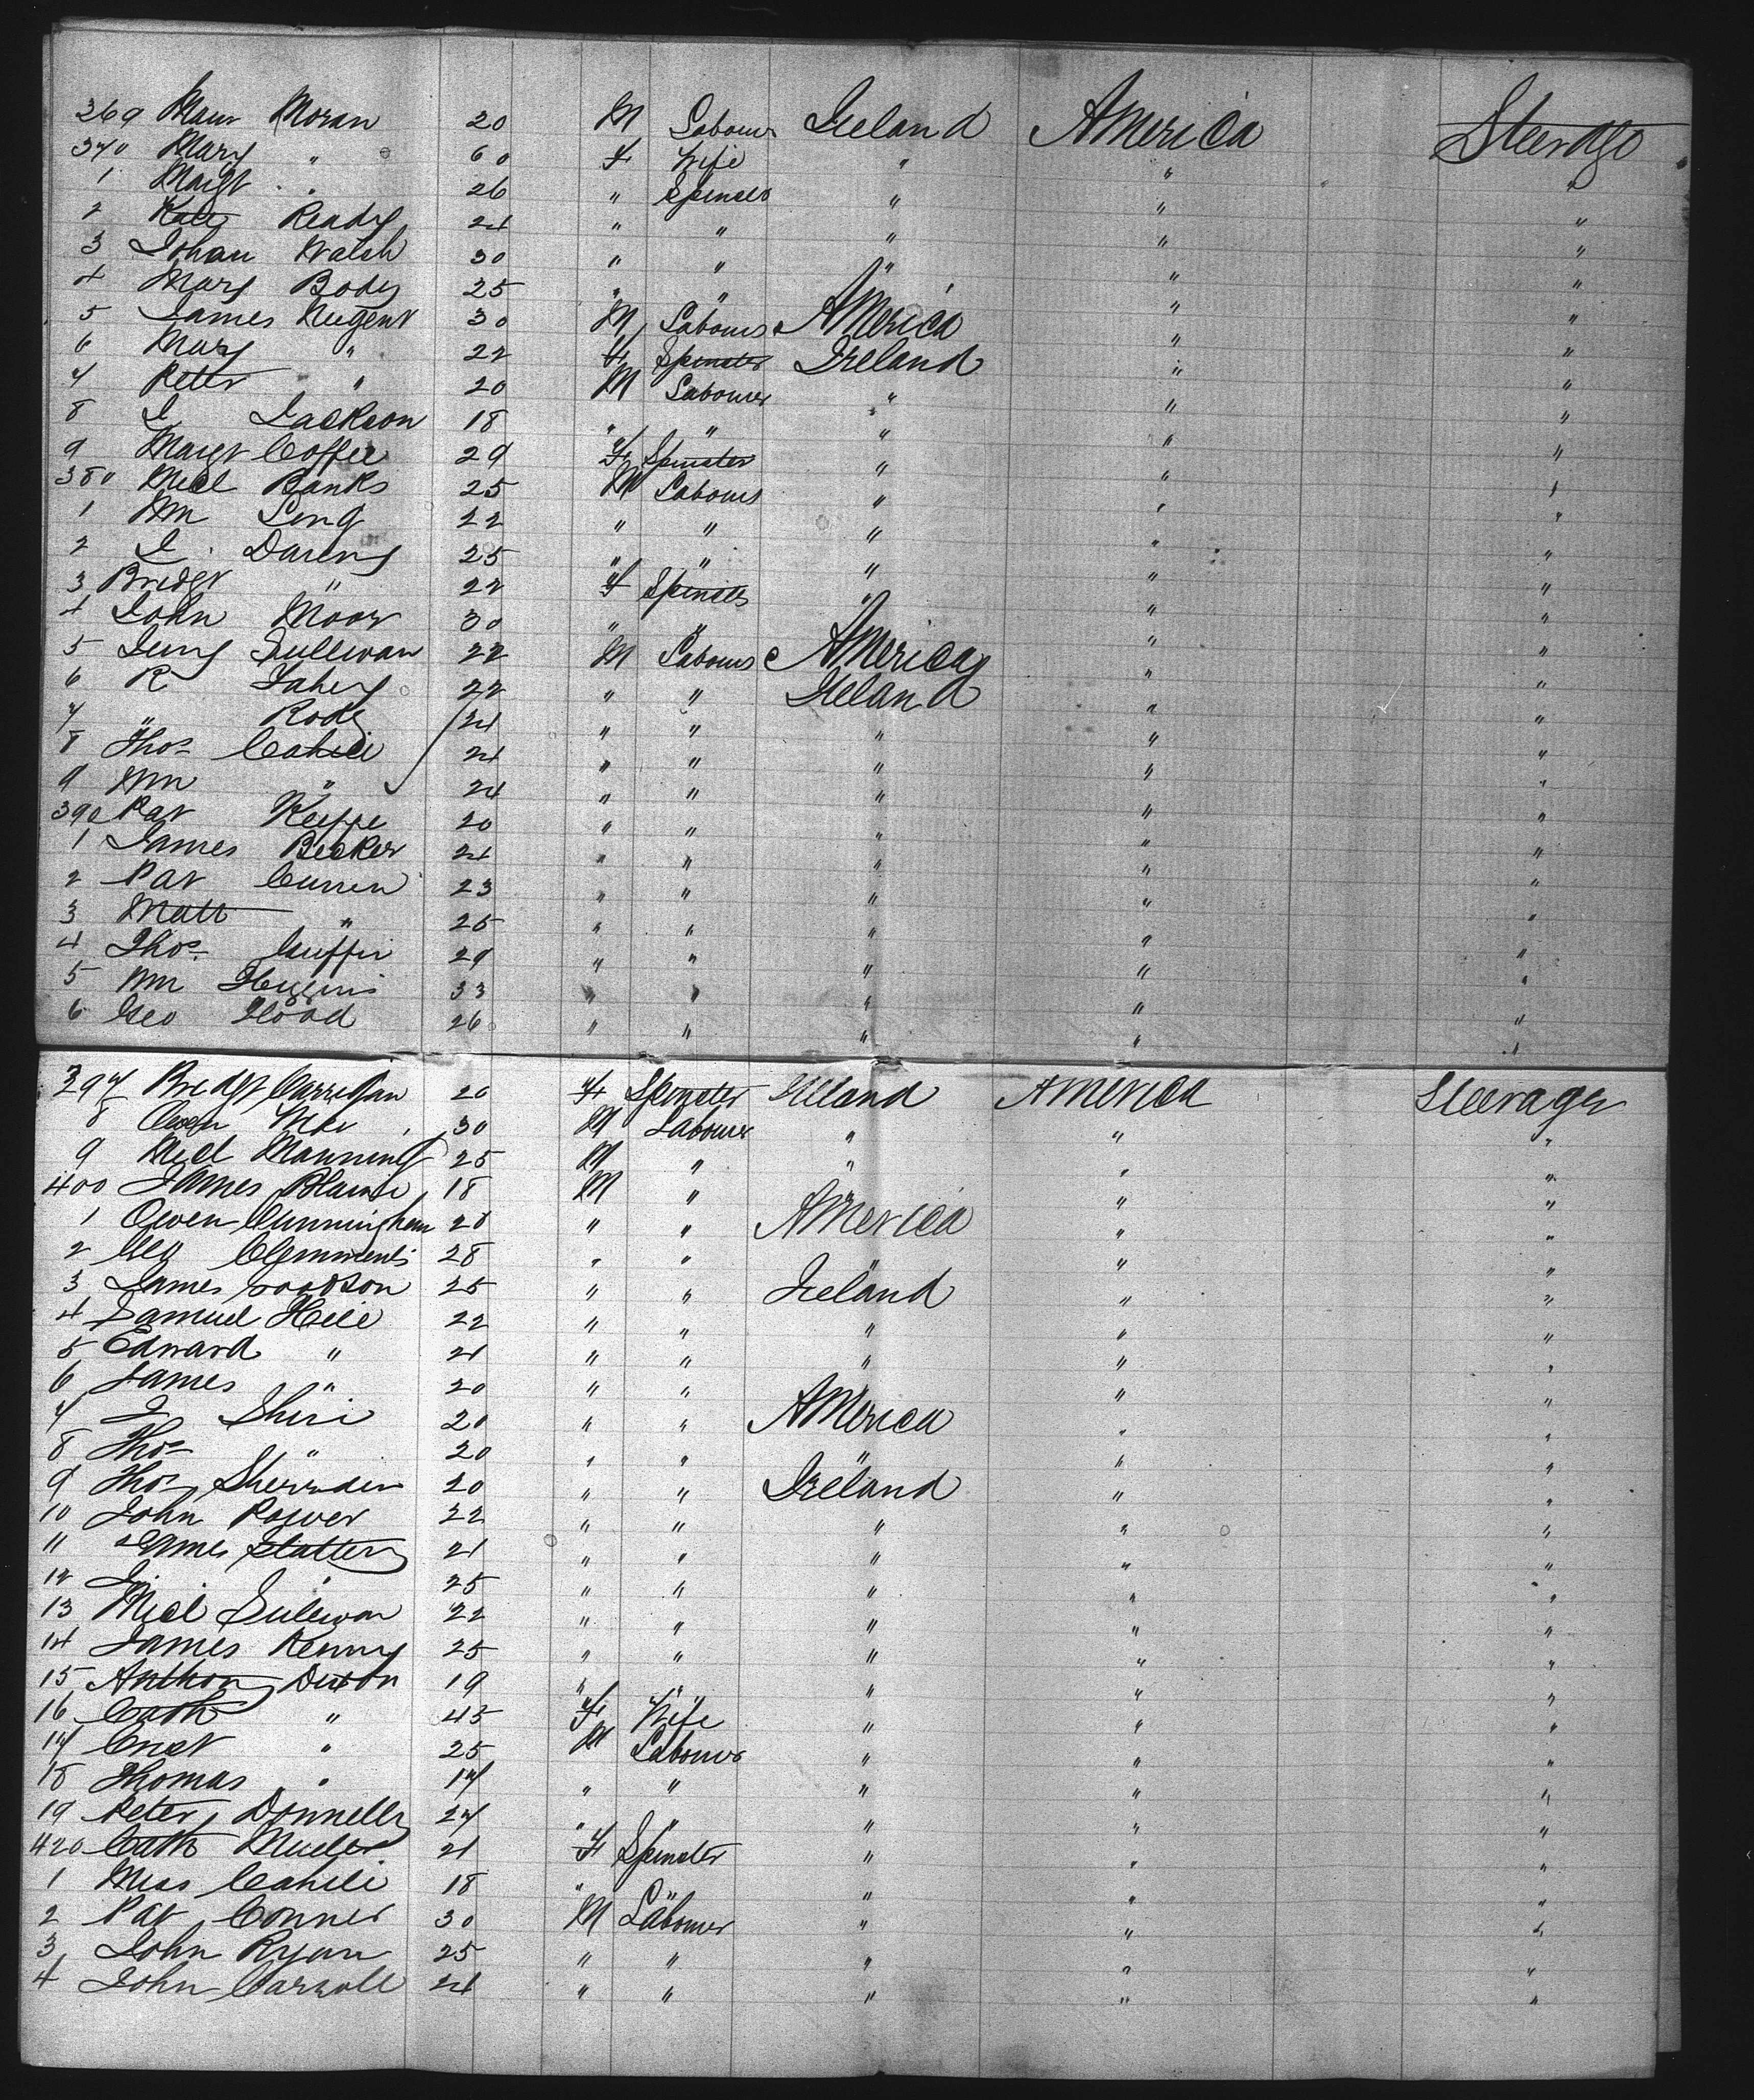 369 Maur Moran 20 M Labourer Ireland America Steerage
370 Mary " 60 F Wife " " "
1 Margt " 26 " Spinster " " "
2 Kate Ready 24 " " " " "
3 Johan Walsh 30 " " " " "
4 Mary Body 25 " " " " "
5 James Nugent 30 M Labourer America " "
6 Mary " 22 F Spinster Ireland " "
7 Peter " 20 M Labourer " " "
8 J Jackson 18 " " " " "
9 Margt Coffee 29 F Spinster " " "
380 Micl Banks 25 M Labourer " " "
1 Wm Long 22 " " " " "
2 J Dareny 25 " " " " "
3 Bridgt " 22 F Spinster " " "
4 John Moor 30 " " " " "
5 Jerry Sullivan 22 M Labourer America " "
6 R Fahey 22 " " Ireland " "
7 " Rody 24 " " " " "
8 Thos Cahill 24 " " " " "
9 Wm " 24 " " " " "
390 Pat Keeffe 20 " " " " "
1 James Becker 24 " " " " "
2 Pat Curren 23 " " " " "
3 Matt " 25 " " " " "
4 Thos Guffin 29 " " " " "
5 Wm Higgins 33 " " " " "
6 Geo Hood 26 " " " " "
397 Bridgt Carrigan 20 F Spinster Ireland America Steerage
8 Owen 30 M Labourer " " "
9 Micl Manning 25 M " " " "
400 James Blaine 18 M " " " "
1 Owen Cunningham 28 " " America " "
2 Geo Clemments 28 " " " " "
3 James 25 " " Ireland " "
4 Samuel Hill 22 " " " " "
5 Edward " 21 " " " " "
6 James " 20 " " " " "
7 J Shiri 20 " " America " "
8 Thos " 20 " " " " "
9 Thos Sherriden 20 " " Ireland " "
10 John Power 22 " " " " "
11 James Slattery 21 " " " " "
12 J " 25 " " " " "
13 Micl Sullivan 22 " " " " "
14 James Kenny 25 " " " " "
15 Anthony Dixon 19 " " " " "
16 Cath " 45 F Wife " " "
17 " 25 M Labourer " " "
18 Thomas " 17 " " " " "
19 Peter Donnelly 27 " " " " "
420 Cath Muller 21 F Spinster " " "
1 Miss Cahill 18 " " " " "
2 Pat Conner 30 M Labourer " " "
3 John Ryan 25 " " " " "
4 John Carroll 24 " " " " "